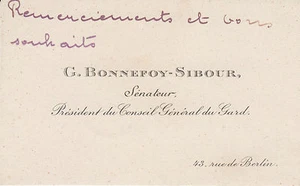 Remerciements et bons
souhaits
G. BONNEFOY-SIBOUR,
Sénateur,
Président du Conseil Général du Gard.
43, rue de Berlin.